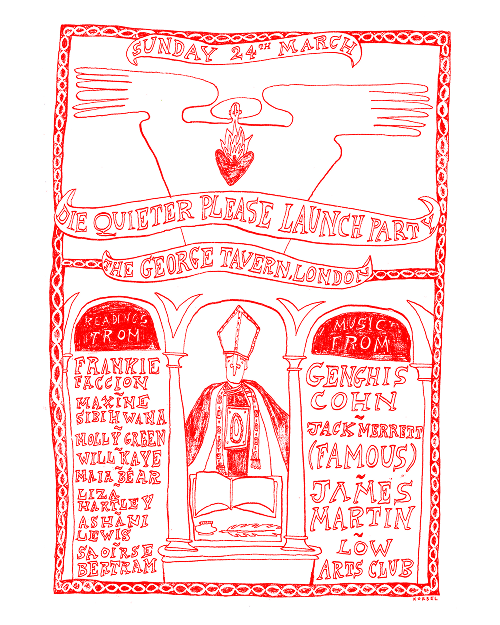 SUNDAY 24TH MARCH
DIE QUIETER PLEASE LAUNCH PARTY
THE GEORGE TAVERN, LONDON
READINGS
FROM
FRANKIE
FACCION
MAXINE
SIBIHWANA
HOLLY GREEN
WILL KAYE
MAIA BÉAR
LIZA
HARTLEY
ASHANI
LEWIS
SAOIRSE
BERTRAM
MUSIC
FROM
GENGHIS
COHN
JACK MERRETT
(FAMOUS)
JAMES
MARTIN
LOW
ARTS CLUB